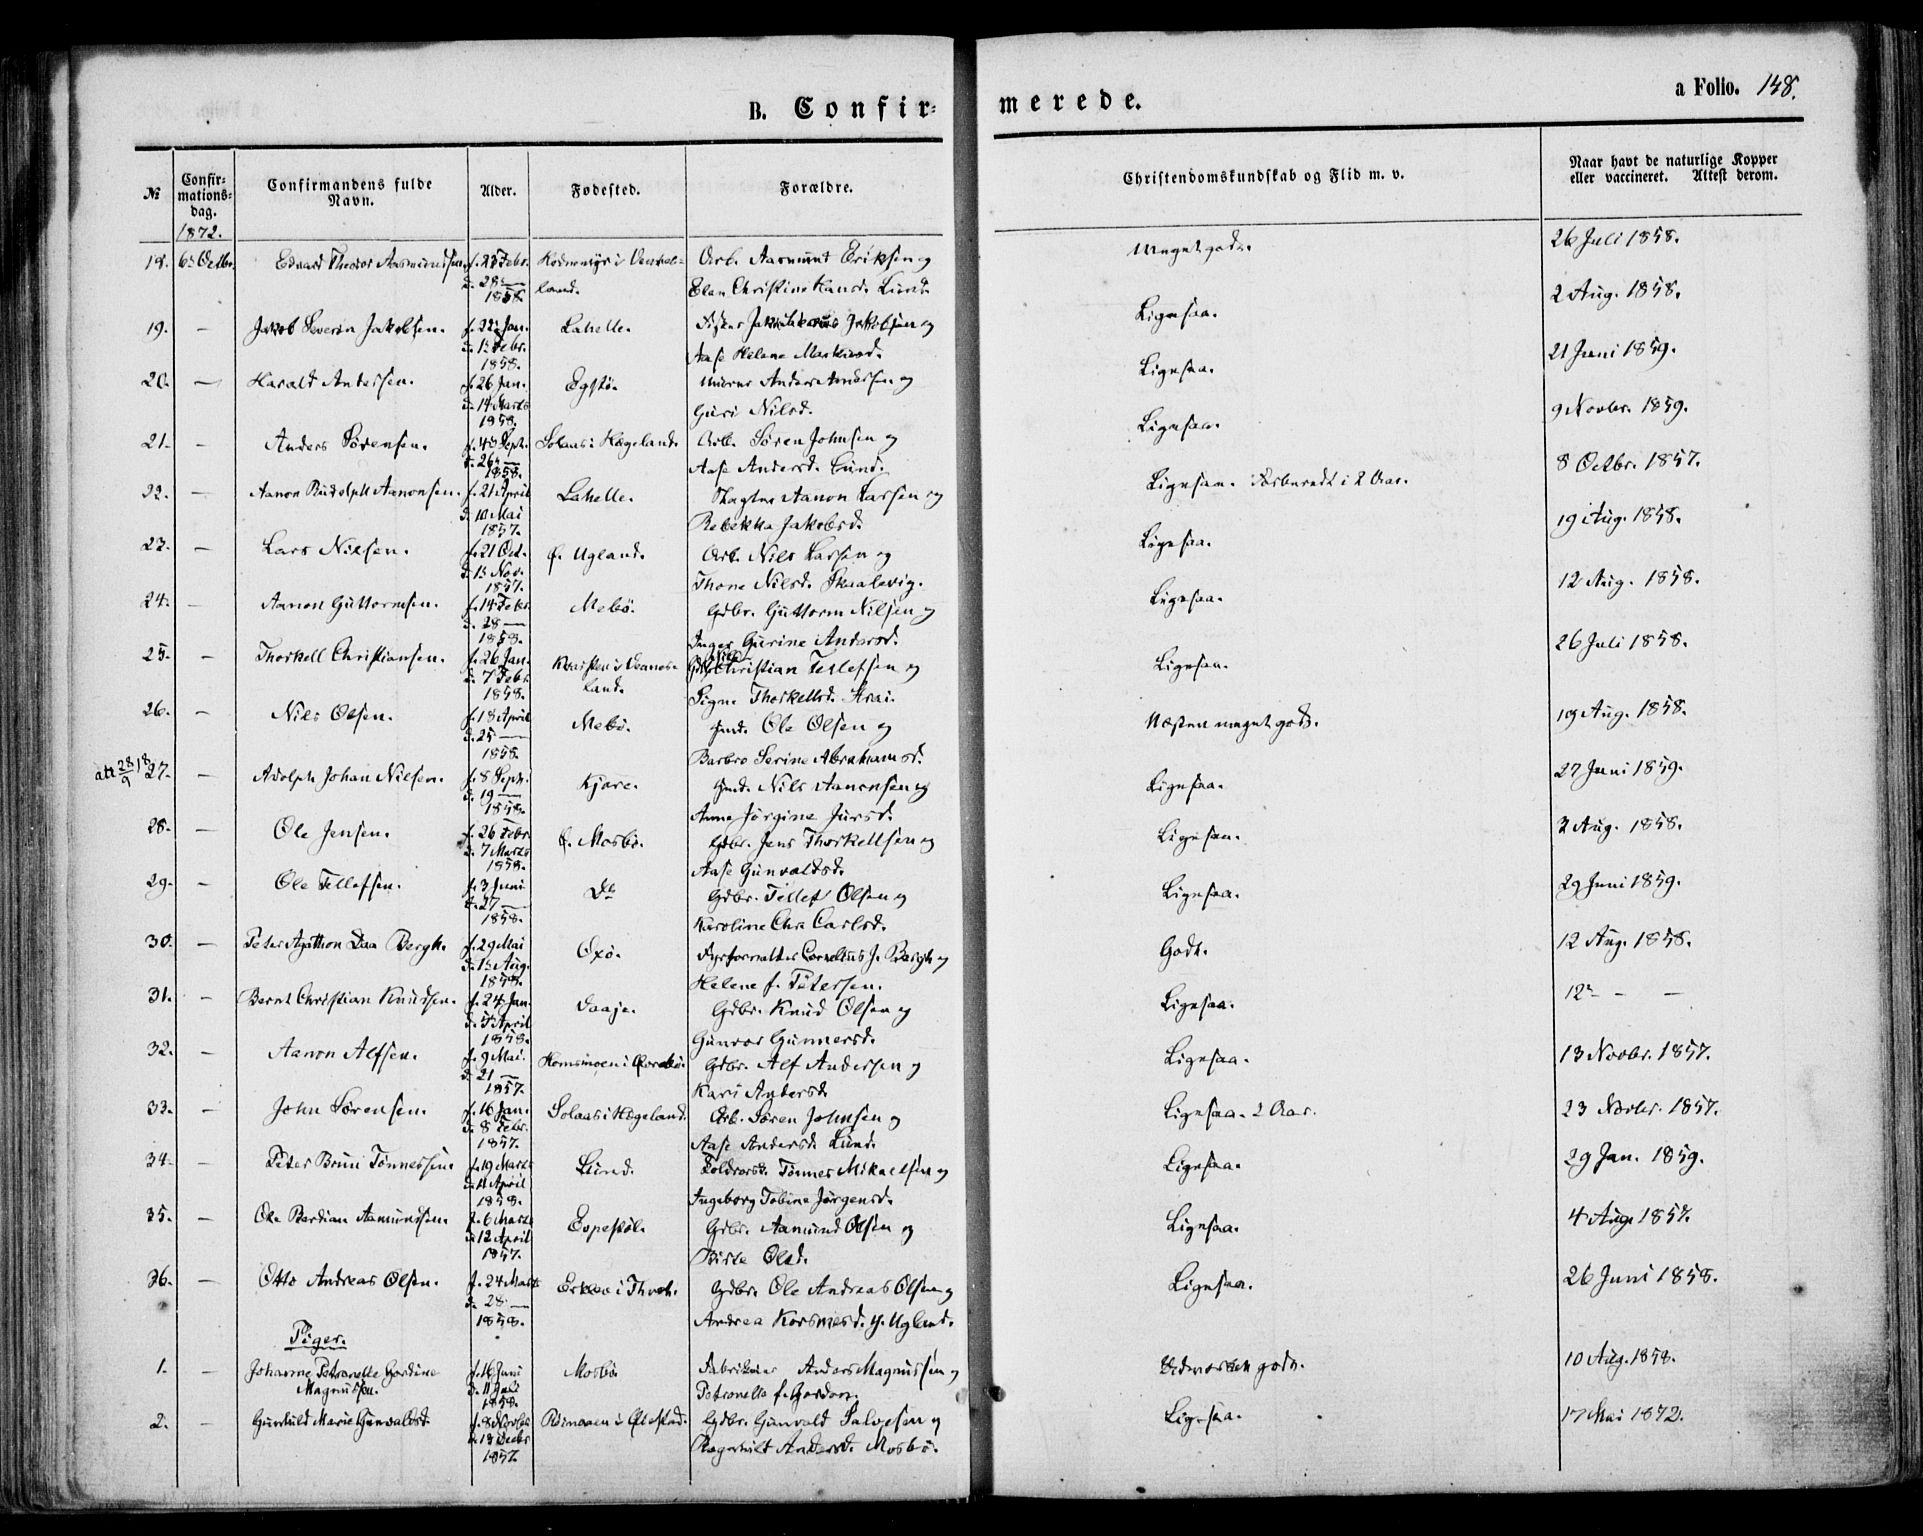 a Folio. 148.
B. Confirmerede.
№ Confirmationsdag. Confirmandens fulde Navn. Alder. Fødested. Forældre. Christendomskundskab og Flid m. v. Naar havt de naturlige Kopper eller vaccineret. Attest derom.
1872.
18. 6te Octbr. Edvard Theodor Aasmundsen. f. 23 Febr. i Vennes- Arb. Aasmund Eriksen og Meget godt. 26 Juli 1858.
d. 28 — 1858. land. Elen Christine Hansd. Lund.
19. — Jakob Severin Jakobsen. f. 22 Jan. Lahelle. Fisker Jakobsen og Ligesaa. 2 Aug. 1858.
d. 15 Febr. 1858. Aase Helene
20. — Harald Andersen. f. 26 Jan. Egsø. Murer Anders Andersen og Ligesaa. 21 Juni 1859.
d. 14 Marts 1858. Guri Nilsd.
21. — Anders Sørensen. f. 4 Septr. Solaas i Hægeland. Arb. Søren Johnsen og Ligesaa. 9 Novbr. 1859.
d. 26 — 1858. Aase Andersd. Lund.
22. — Aanon Rudolph Aanonsen. f. 21 April Lahelle. Aanon Larsen og Ligesaa. Forberedt i 2 Aar. 8 Octbr. 1857.
d. 10 Mai 1857. Rebekka Jakobsd.
23. — Lars Nilsen. f. 21 Oct. f. Ugland. Arb. Nils Larsen og Ligesaa. 19 Aug. 1858.
d. 15 Nov. 1857. Thone Nilsd. Skaalevig.
24. — Aanon Guttormsen. f. 14 Febr. Mebø. Gdbr. Guttorm Nilsen og Ligesaa. 12 Aug. 1858.
d. 28 — 1858. Inger Gurine Andersd.
25. — Thorkell Christiansen. f. 26 Jan. Kvarsten i Vennes- Christian Tellefsen og Ligesaa. 26 Juli 1858.
d. 7 Febr. 1858. land. Signe Thorkellsd. Strai.
26. — Nils Olsen. f. 18 April Mebø. Ole Olsen og Næsten meget godt. 19 Aug. 1858.
d. 25 — 1858. Barbro Serine Abrahamsd.
att 28/9 18 27. — Adolph Johan Nilsen. f. 8 Septr. Kjære. Nils Aanonsen og Ligesaa. 27 Juni 1859.
d. 19 — 1858. Anna Jørgine Jursd.
28. — Ole Jensen. f. 26 Febr. f. Mosbø. Gdbr. Jens Thorkellsen og Ligesaa. 2 Aug. 1858.
d. 7 Marts 1858. Aase Gunvaldsd.
29. — Ole Tellefsen. f. 3 Juni Do Gdbr. Tellef Olsen og Ligesaa. 29 Juni 1859.
d. 27 — 1858. Karoline Chra Carlsd.
30. — Peter Agathon Daa Bergh. f. 29 Mai Oxø. Fyrforvalter Cornelius J. Bergh og Godt. 12 Aug. 1858.
d. 15 Aug. 1858. Helene f. Petersen.
31. — Bernt Christian Knudsen. f. 24 Jan. Vaaje. Gdbr. Knud Olsen og Ligesaa. 12te — —
d. 5 April 1858. Gunvor Gunnersd.
32. — Aanon Alfsen. f. 9 Mai. Homsmoen i Øvrebø. Gdbr. Alf Andersen og Ligesaa. 13 Novbr. 1857.
d. 21 — 1857. Kari Andersd.
33. — John Sørensen. f. 16 Jan. Solaas i Hægeland. Arb. Søren Johnsen og Ligesaa. 2 Aar. 23 Novbr. 1857.
d. 8 Febr. 1857. Aase Andersd. Lund.
34. — Peter Bruu Tønnessen. f. 19 Marts Lund. Tønnes Mikaelsen og Ligesaa. 29 Jan. 1859.
d. 11 April 1858. Ingeborg Tobine Jørgensd.
35. — Ole Berdian Aamundsen. f. 6 Marts Espestøl. Gdbr. Aamund Olsen og Ligesaa. 4 Aug. 1857.
d. 12 April 1857. Birte Olsd.
36. — Otto Andreas Olsen. f. 24 Marts i Thveit. Gdbr. Ole Andreas Olsen og Ligesaa. 26 Juni 1858.
d. 28 — 1858. Andrea Korsmesd. Ugland.
Piger.
1. — Johanne Petronelle Gordine f. 16 Juni Mosbø Fabrikeier Anders Magnussen og Udmærket godt. 10 Aug. 1858.
Magnussen. d. 11 Juli 1858. Petronella f. Gordon.
2. — Gunhild Marie Gunvaldsd. f. 8 Novbr. i Øiestad. Gdbr. Gunvald Salvesen og Ligesaa. 17 Mai 1872.
d. 18 Decbr 1857. Ragnhild Andersd. Mosbø.